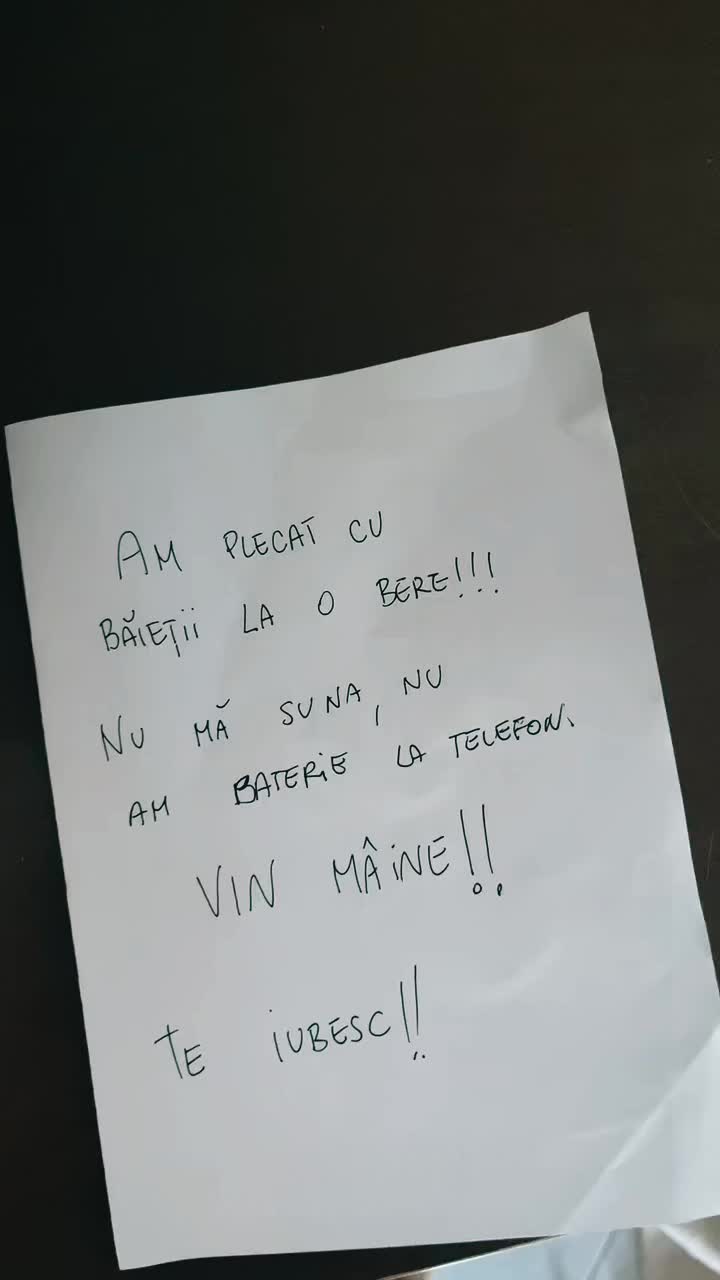 AM PLECAT CU
BĂIEȚII LA O BERE!!!
NU MĂ SUNA, NU
AM BATERIE LA TELEFON.
VIN MÂINE!!
TE IUBESC!!